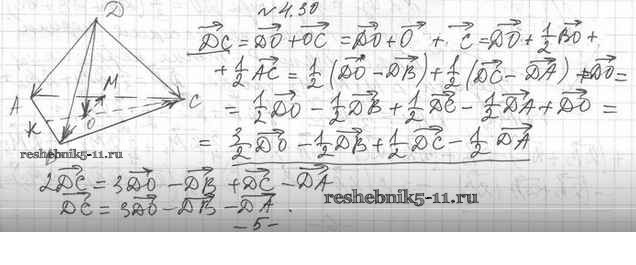 №4.30
D
DC→ = DO→ + OC→ = DO→ + O→ + C→ = DO→ + 1/2 BO→ +
+ 1/2 AC→ = 1/2 (DO→ - DB→) + 1/2 (DC→ - DA→) + DO→ =
M
A
C
= 1/2 DO→ - 1/2 DB→ + 1/2 DC→ - 1/2 DA→ + DO→ =
O
K
= 3/2 DO→ - 1/2 DB→ + 1/2 DC→ - 1/2 DA→
reshebnik5-11.ru
2DC→ = 3DO→ - DB→ + DC→ - DA→
DC→ = 3DO→ - DB→ - DA→.
reshebnik5-11.ru
-5-